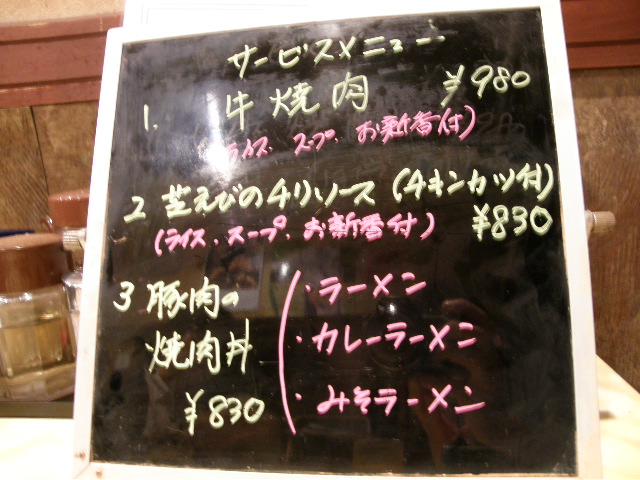 サービスメニュー
1. 牛焼肉 ¥980
(ライス、スープ、お新香付)
2 芝えびのチリソース (チキンカツ付)
(ライス、スープ、お新香付) ¥830
3 豚肉の
焼肉丼
¥830
・ラーメン
・カレーラーメン
・みそラーメン